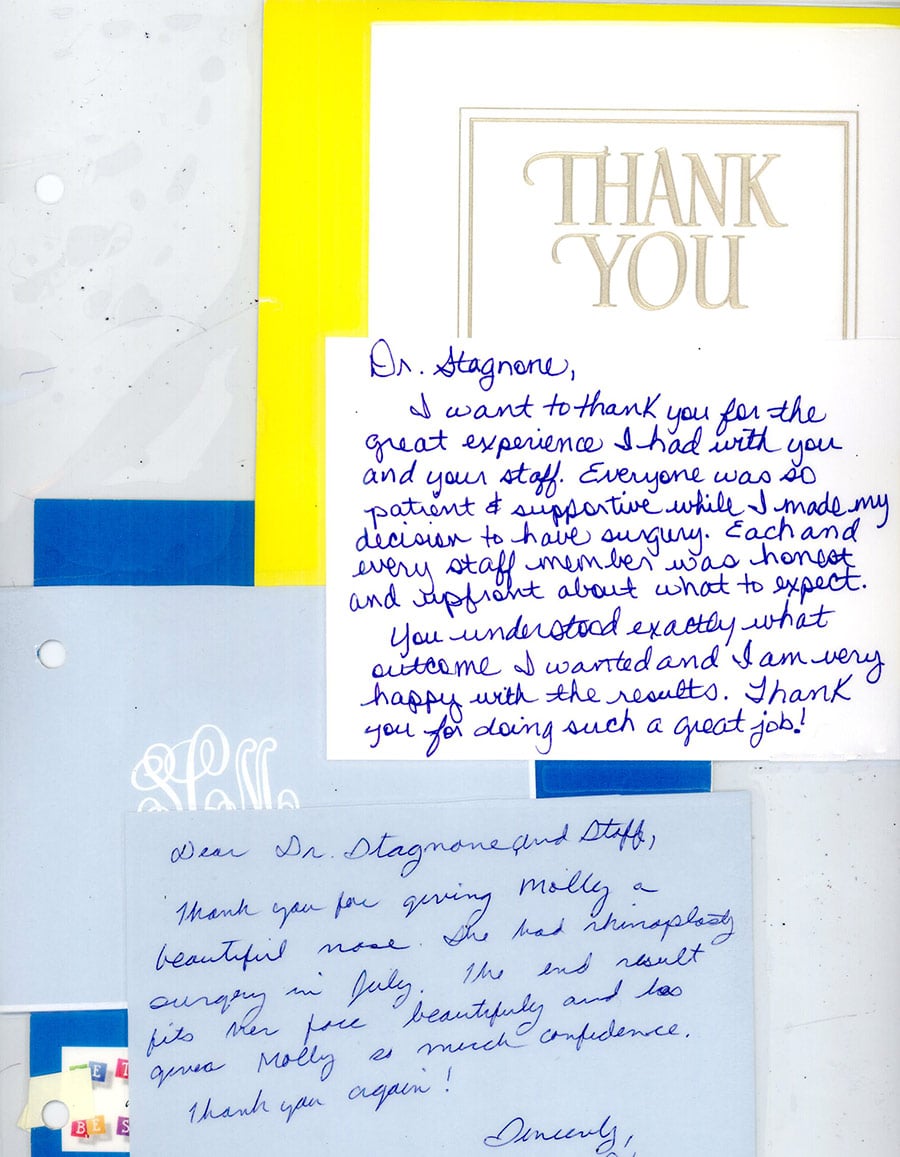 THANK
YOU
Dr. Stagnone,
I want to thank you for the
great experience I had with you
and your staff. Everyone was so
patient & supportive while I made my
decision to have surgery. Each and
every staff member was honest
and upfront about what to expect.
You understood exactly what
outcome I wanted and I am very
happy with the results. Thank
you for doing such a great job!
Dear Dr. Stagnone and Staff,
Thank you for giving Molly a
beautiful nose. She had rhinoplasty
surgery in July. The end result
fits her face beautifully and has
given Molly so much confidence.
Thank you again!
Sincerely,
E T
B E S